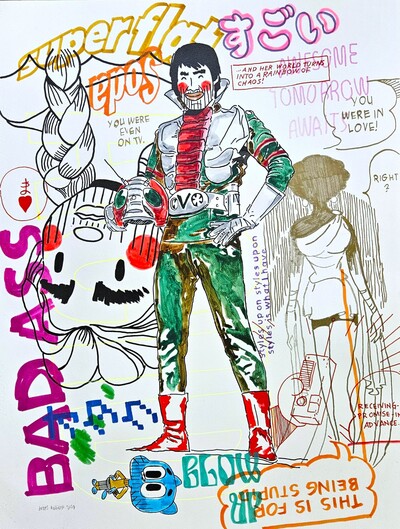 superflat
すごい
soda
...AND HER WORLD TURNS
INTO A RAINBOW OF
CHAOS!
AWESOME
TOMORROW
AWAITS
YOU WERE
EVEN
ON TV.
YOU
WERE IN
LOVE!
RIGHT
?
ま
♥
V3
BADASS
styles upon styles upon
styles is what I have
RECEIVING-
PROMISE-IN
ADVANCE.
BLOW
UP
THIS IS FOR
BEING STUPID